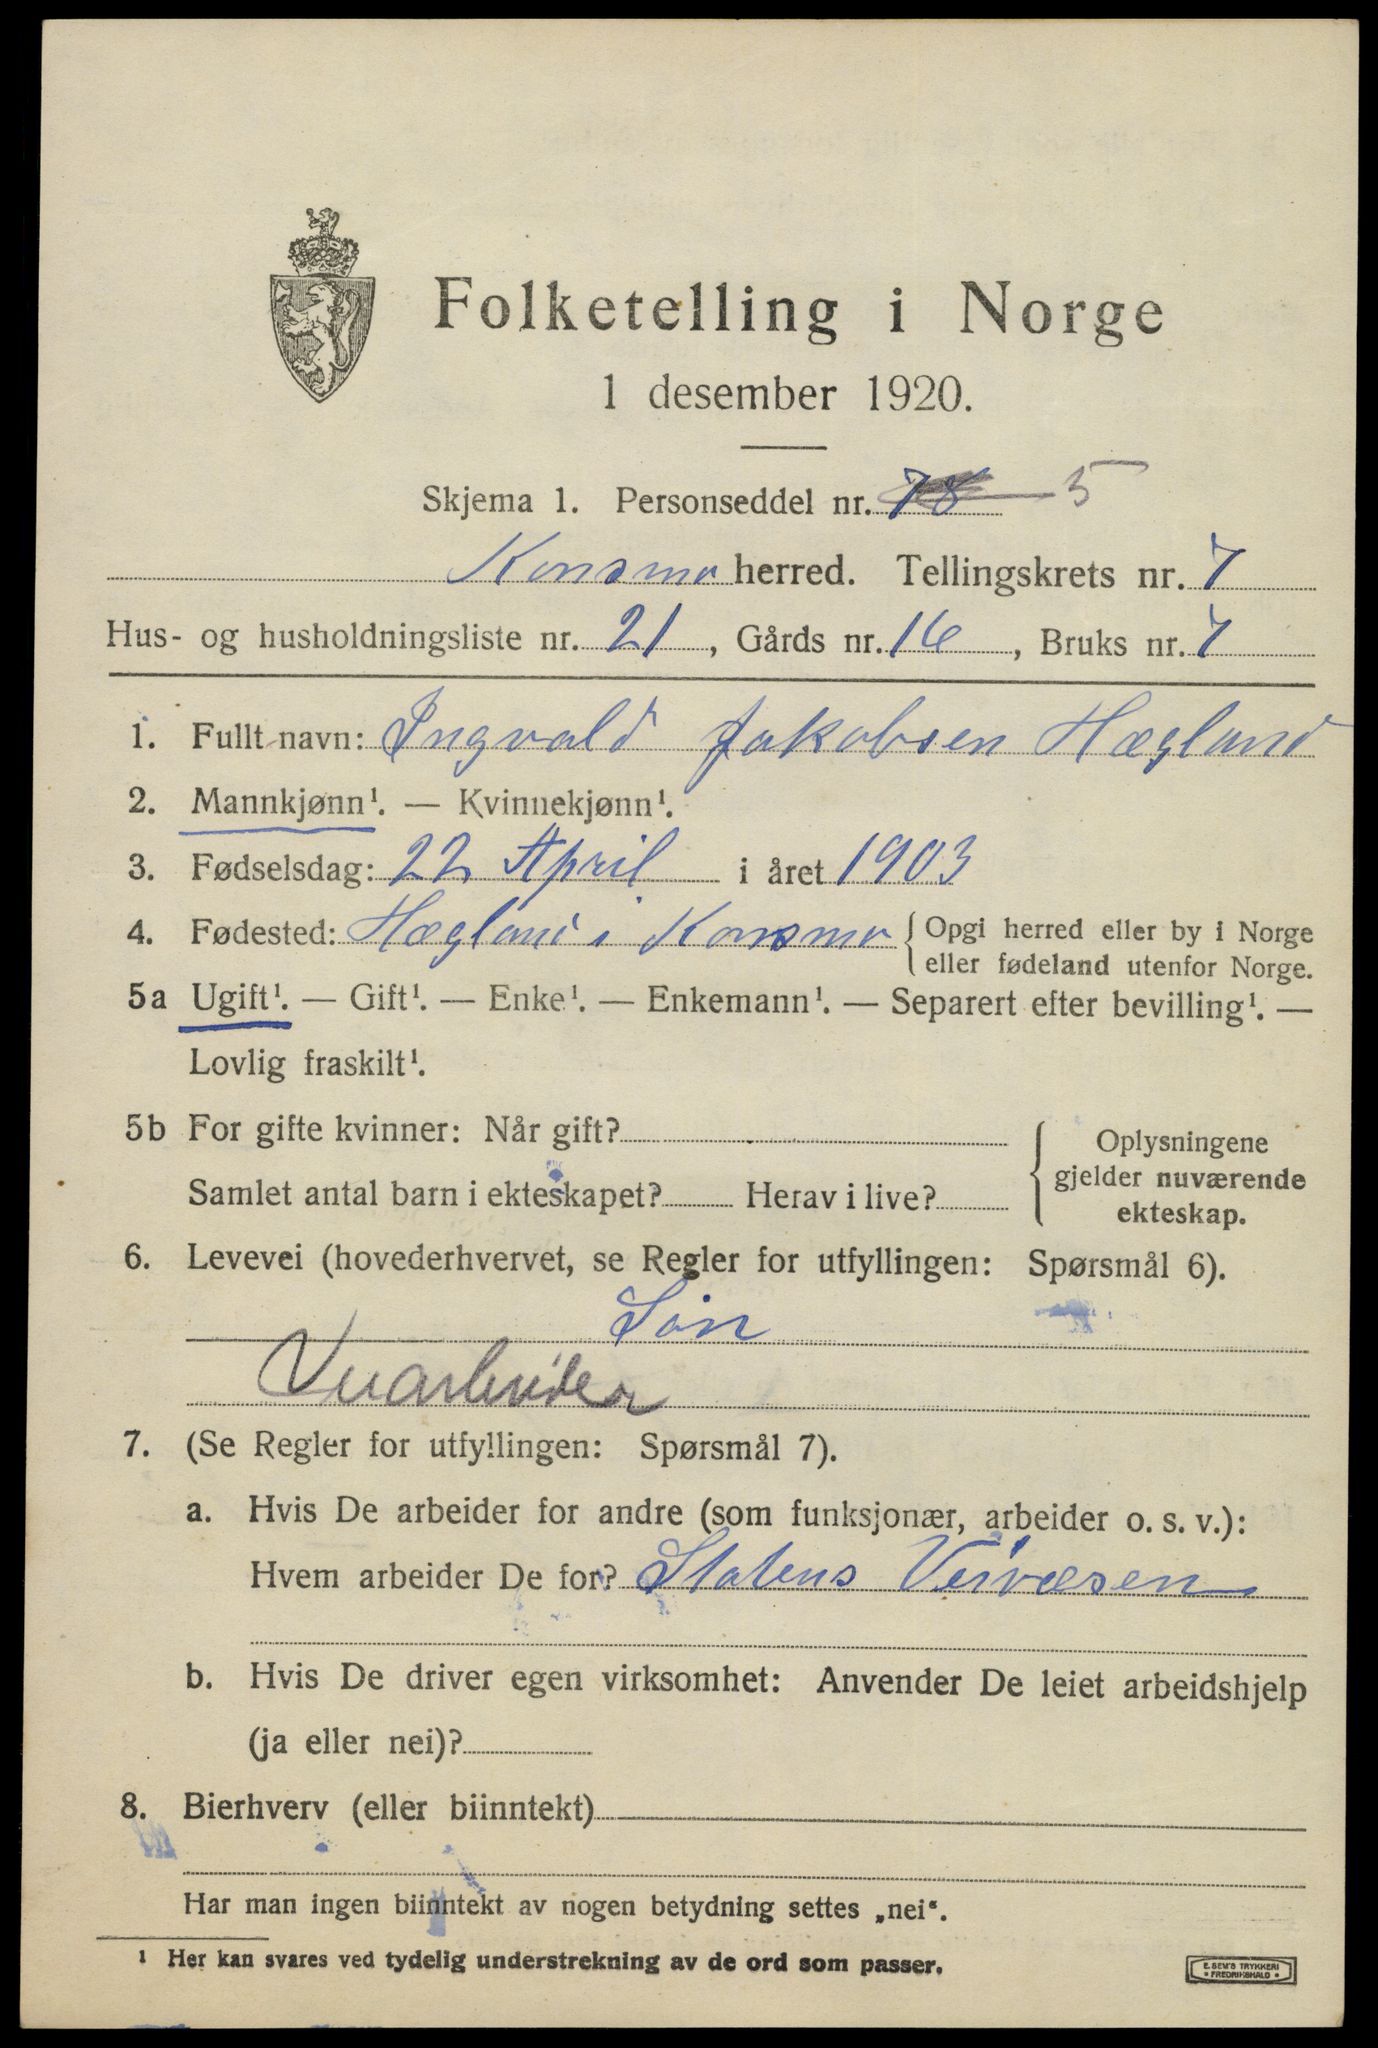 Folketelling i Norge
1 desember 1920.
Skjema 1. Personseddel nr. 78 5
Konsmo herred. Tellingskrets nr. 7
Hus- og husholdningsliste nr. 21, Gårds nr. 16, Bruks nr. 7
1. Fullt navn: Ingvald Jakobsen Hægland
2. Mannkjønn¹. — Kvinnekjønn¹.
3. Fødselsdag: 22 April i året 1903
4. Fødested: Hægland i Konsmo { Opgi herred eller by i Norge
eller fødeland utenfor Norge.
5a Ugift¹. — Gift¹. — Enke¹. — Enkemann¹. — Separert efter bevilling¹. —
Lovlig fraskilt¹.
5b For gifte kvinner: Når gift?
Samlet antal barn i ekteskapet? Herav i live?
Oplysningene
gjelder nuværende
ekteskap.
6. Levevei (hovederhvervet, se Regler for utfyllingen: Spørsmål 6).
Søn
Veiarbeider
7. (Se Regler for utfyllingen: Spørsmål 7).
a. Hvis De arbeider for andre (som funksjonær, arbeider o. s. v.):
Hvem arbeider De for? Statens Veivæsen
b. Hvis De driver egen virksomhet: Anvender De leiet arbeidshjelp
(ja eller nei)?
8. Bierhverv (eller biinntekt)
Har man ingen biinntekt av nogen betydning settes „nei“.
¹ Her kan svares ved tydelig understrekning av de ord som passer.
E. SEM'S TRYKKERI
• FREDRIKSHALD •